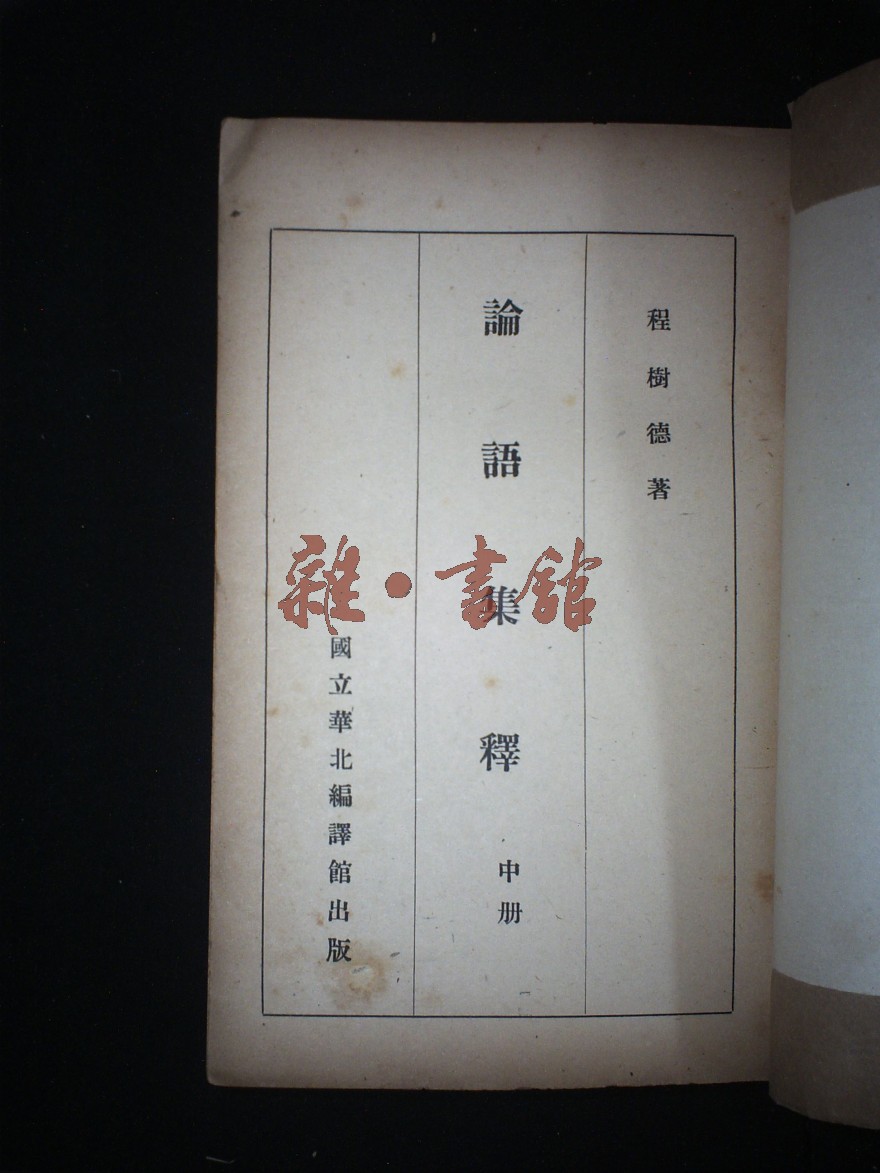 程樹德著
論語集釋
中册
國立華北編譯館出版
雜·書館